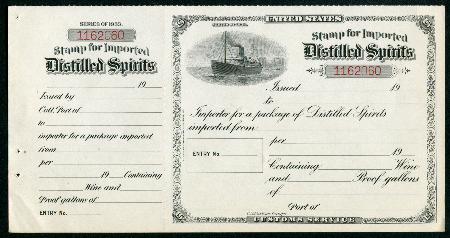 SERIES OF 1935.
1162760
Stamp for Imported
Distilled Spirits
19
Issued by
Coll., Port of
to
importer for a package imported
from
per
19 Containing
Wine and
Proof gallons of
ENTRY No.
UNITED STATES
SERIES OF 1935.
Stamp for Imported
Distilled Spirits
1162760
Issued 19
to
Importer for a package of Distilled Spirits
imported from
per
19
ENTRY No.
Containing Wine
and Proof gallons
of
Port of
CUSTOMS SERVICE